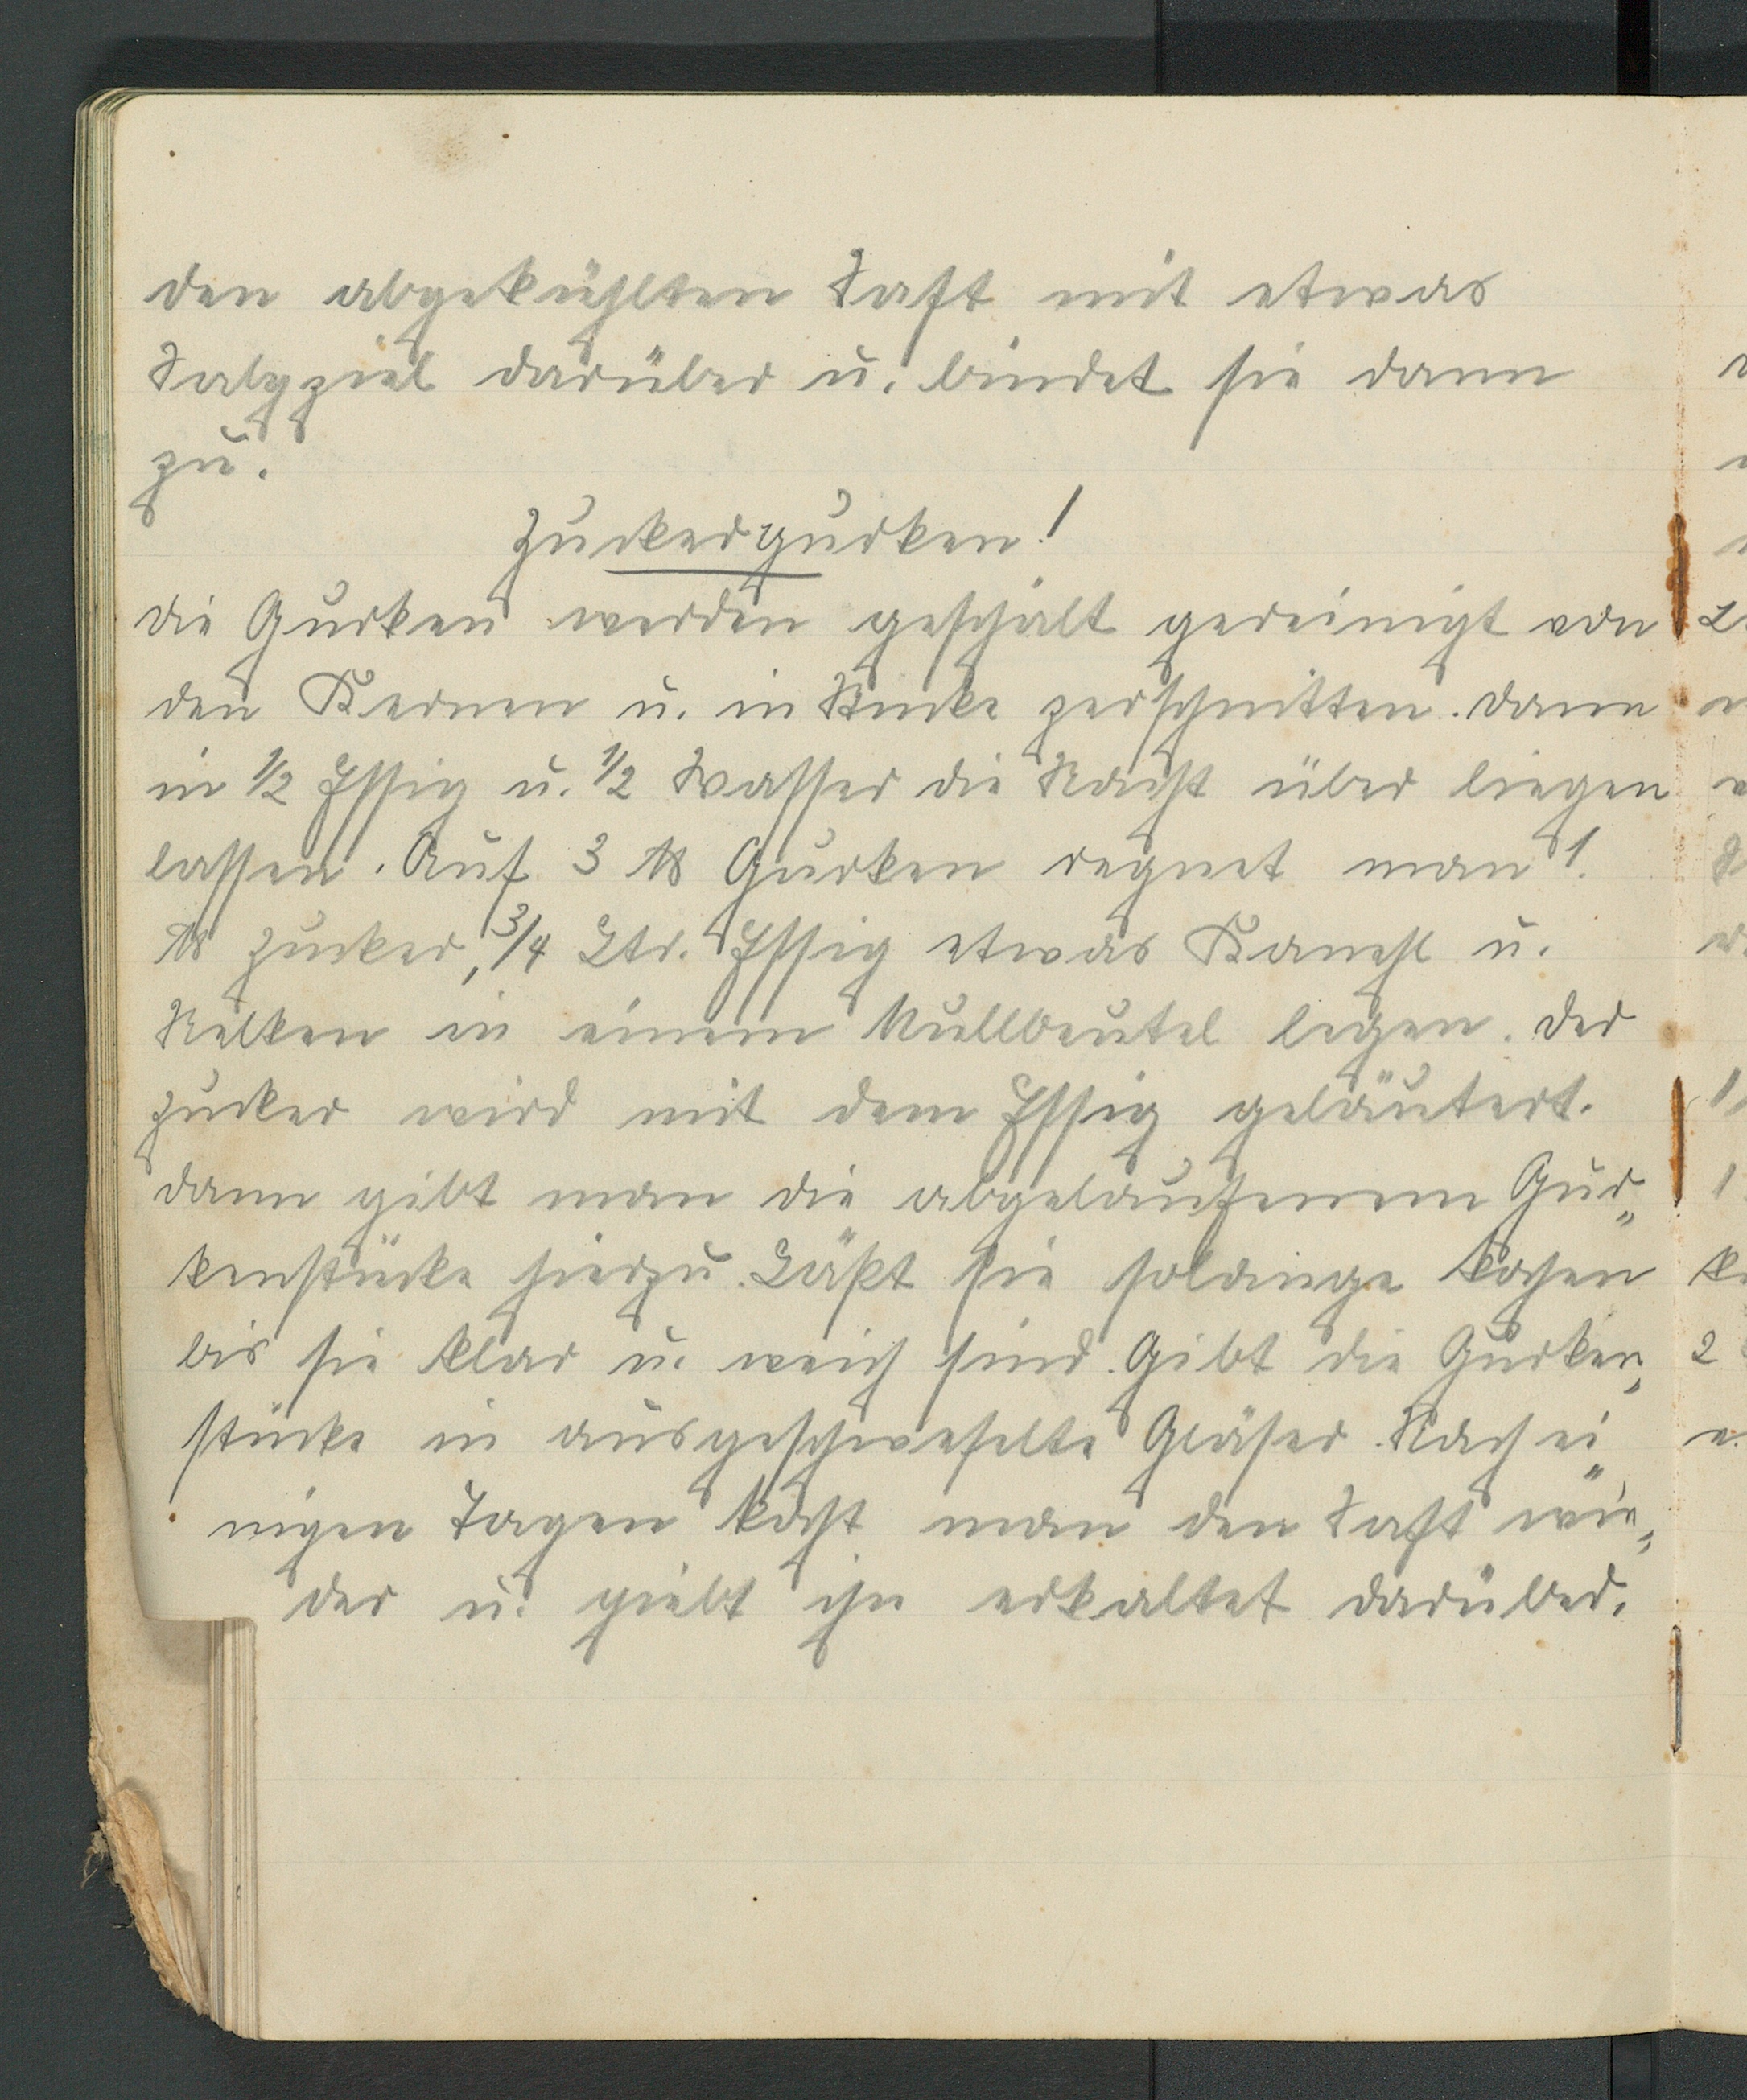 den abgekühlten Saft mit etwas
Salyziel darüber u. bindet sie dann
zu.
Zuckergurken!
Die Gurken werden geschält gereinigt von
den Kernen u. in Stücke zerschnitten. Dann
in 1/2 Essig u. 1/2 Wasser die Nacht über liegen
lassen. Auf 3 ℔ Gurken regnet man 1.
℔ Zucker, 3/4 Ltr. Essig etwas Kanehl u.
Nelken in einem Mullbeutel legen. Der
Zucker wird mit dem Essig geläutert.
Dann gibt man die abgelaufenem Gur„
kenstücke hierzu. Läßt sie solange kochen
bis sie klar u. weich sind. Gibt die Gurken„
stücke in ausgeschwefelte Gläser. Nach ei„
nigen Tagen kocht man den Saft wie„
der u. giebt ihn erkaltet darüber.